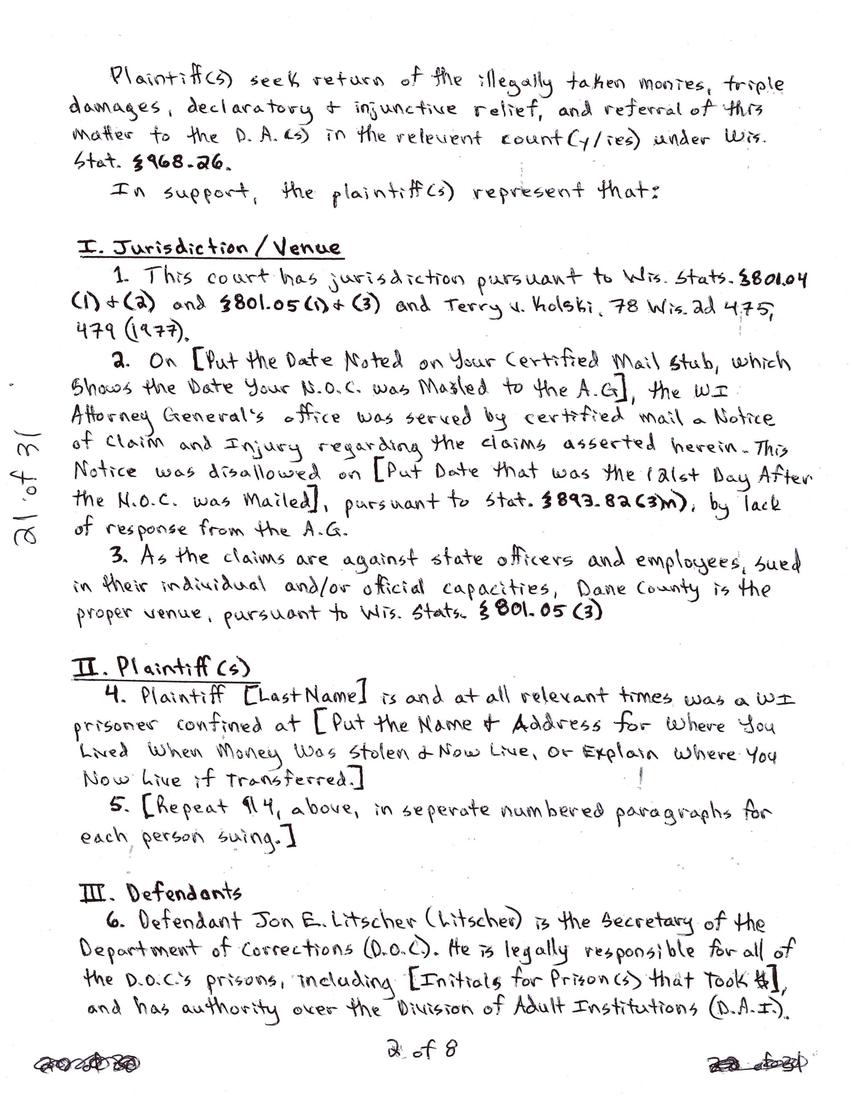 Plaintiff(s) seek return of the illegally taken monies, triple
damages, declaratory + injunctive relief, and referral of this
matter to the D.A.(s) in the relevent count(y/ies) under Wis.
Stat. §968.26.
In support, the plaintiff(s) represent that:
I. Jurisdiction/Venue
1. This court has jurisdiction pursuant to Wis. Stats. §801.04
(1) + (2) and §801.05(1) + (3) and Terry v. Kolski, 78 Wis. 2d 475,
479 (1977).
2. On [Put the Date Noted on Your Certified Mail Stub, which
Shows the Date Your N.O.C. was Mailed to the A.G], the WI
Attorney General's office was served by certified mail a Notice
of Claim and Injury regarding the claims asserted herein. This
Notice was disallowed on [Put Date that was the 121st Day After
the N.O.C. was Mailed], pursuant to Stat. §893.82(3m), by lack
of response from the A.G.
3. As the claims are against state officers and employees, sued
in their individual and/or official capacities, Dane County is the
proper venue, pursuant to Wis. Stats. §801.05(3)
II. Plaintiff(s)
4. Plaintiff [Last Name] is and at all relevant times was a WI
prisoner confined at [Put the Name + Address for Where You
Lived When Money Was Stolen + Now Live, Or Explain Where You
Now Live if Transferred.]
5. [Repeat ¶4, above, in seperate numbered paragraphs for
each person suing.]
III. Defendants
6. Defendant Jon E. Litscher (Litscher) is the Secretary of the
Department of Corrections (D.O.C). He is legally responsible for all of
the D.O.C.'s prisons, including [Initials for Prison(s) that Took $],
and has authority over the Division of Adult Institutions (D.A.I.).
2 of 8
21 of 31